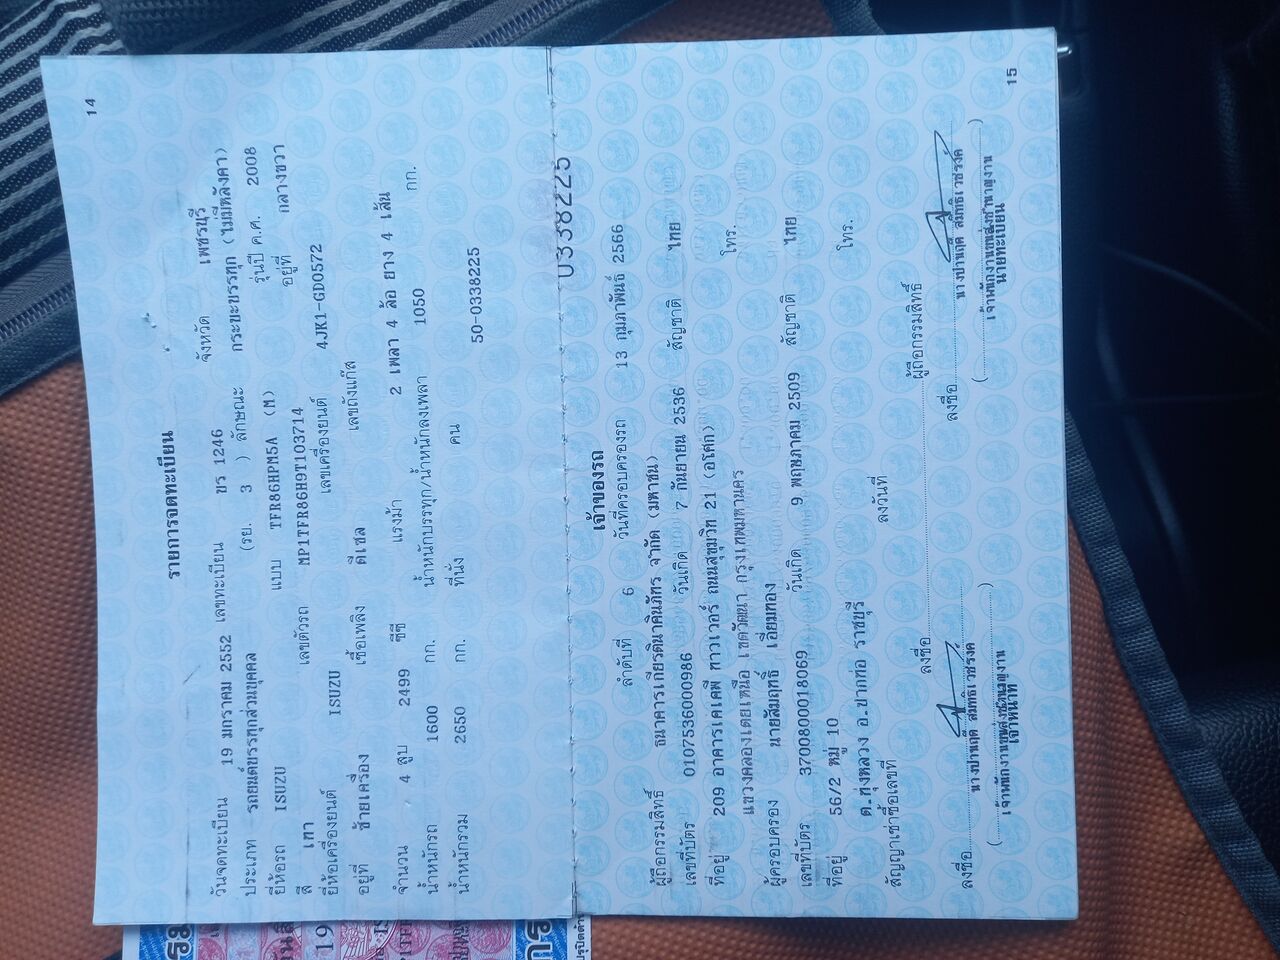 14
รายการจดทะเบียน
วันจดทะเบียน 19 มกราคม 2552 เลขทะเบียน ขร 1246 จังหวัด เพชรบุรี
ประเภท รถยนต์บรรทุกส่วนบุคคล (รย. 3 ) ลักษณะ กระบะบรรทุก (ไม่มีหลังคา)
ยี่ห้อรถ ISUZU แบบ TFR86HPM5A (M) รุ่นปี ค.ศ. 2008
สี เทา เลขตัวรถ MP1TFR86H9T103714 อยู่ที่ กลางขวา
ยี่ห้อเครื่องยนต์ ISUZU เลขเครื่องยนต์ 4JK1-GD0572
อยู่ที่ ซ้ายเครื่อง เชื้อเพลิง ดีเซล เลขถังแก๊ส
จำนวน 4 สูบ 2499 ซีซี แรงม้า 2 เพลา 4 ล้อ ยาง 4 เส้น
น้ำหนักรถ 1600 กก. น้ำหนักบรรทุก/น้ำหนักลงเพลา 1050 กก.
น้ำหนักรวม 2650 กก. ที่นั่ง คน
50-0338225
0338225
เจ้าของรถ
ลำดับที่ 6 วันที่ครอบครองรถ 13 กุมภาพันธ์ 2566
ผู้ถือกรรมสิทธิ์ ธนาคารเกียรตินาคินภัทร จำกัด (มหาชน)
เลขที่บัตร 0107536000986 วันเกิด 7 กันยายน 2536 สัญชาติ ไทย
ที่อยู่ 209 อาคารเคเคพี ทาวเวอร์ ถนนสุขุมวิท 21 (อโศก)
แขวงคลองเตยเหนือ เขตวัฒนา กรุงเทพมหานคร โทร.
ผู้ครอบครอง นายสัมฤทธิ์ เอี่ยมทอง
เลขที่บัตร 3700800018069 วันเกิด 9 พฤษภาคม 2509 สัญชาติ ไทย
ที่อยู่ 56/2 หมู่ 10
ต.ทุ่งหลวง อ.ปากท่อ ราชบุรี โทร.
สัญญาเช่าซื้อเลขที่ ลงวันที่
ลงชื่อ ผู้ถือกรรมสิทธิ์
ลงชื่อ ลงชื่อ
นางปานฤดี สมิทธิเวชรงค์ นางปานฤดี สมิทธิเวชรงค์
เจ้าพนักงานขนส่งชำนาญงาน เจ้าพนักงานขนส่งชำนาญงาน
เจ้าหน้าที่ นายทะเบียน
15